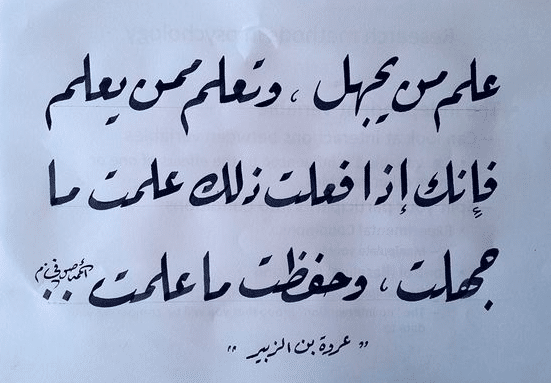 علم من يجهل ، وتعلم ممن يعلم
فإنك إذا فعلت ذلك علمت ما
جهلت ، وحفظت ما علمت ..
" عروة بن الزبير "
Research methods in psychology